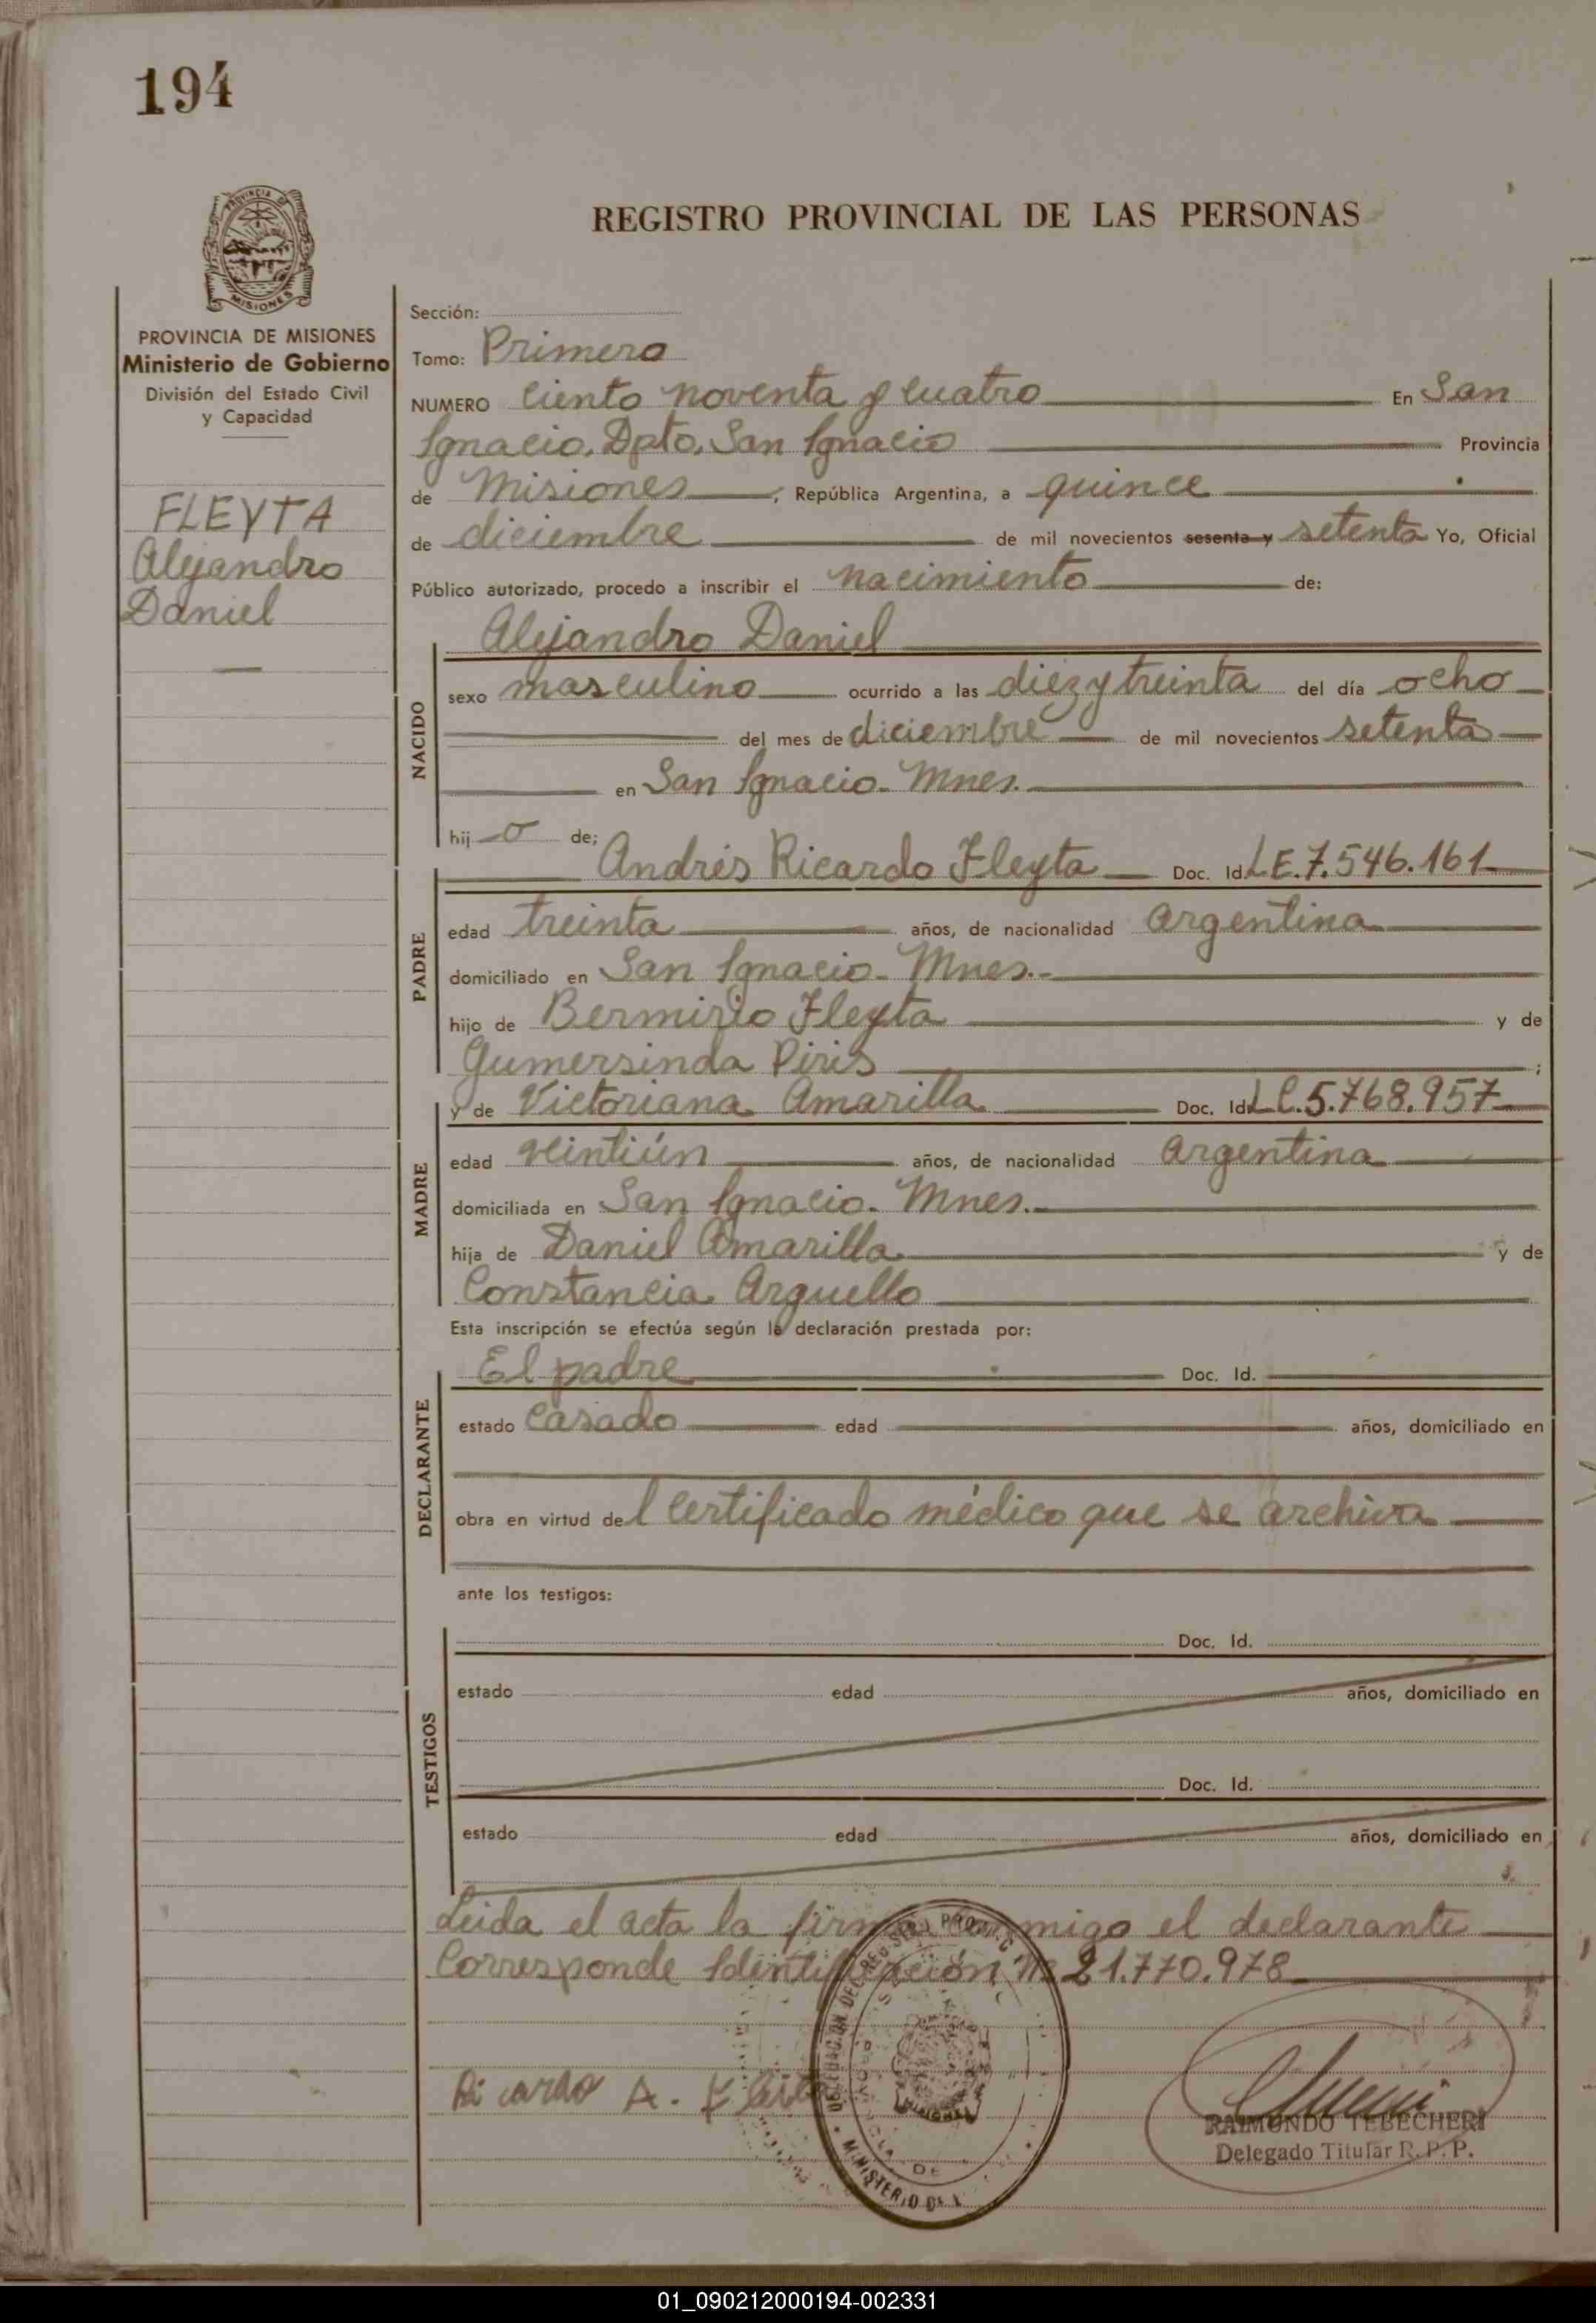 194
PROVINCIA DE
MISIONES
REGISTRO PROVINCIAL DE LAS PERSONAS
PROVINCIA DE MISIONES
Ministerio de Gobierno
División del Estado Civil
y Capacidad
FLEYTA
Alejandro
Daniel
Sección:
Tomo: Primero
NUMERO Ciento noventa y cuatro En San
Ignacio, Dpto. San Ignacio Provincia
de Misiones, República Argentina, a quince
de diciembre de mil novecientos sesenta y setenta Yo, Oficial
Público autorizado, procedo a inscribir el nacimiento de:
NACIDO
Alejandro Daniel
sexo masculino ocurrido a las diez y treinta del día ocho
del mes de diciembre de mil novecientos setenta
en San Ignacio. Mnes.
hij o de;
PADRE
Andrés Ricardo Fleyta Doc. Id. L.E. 7.546.161
edad treinta años, de nacionalidad argentina
domiciliado en San Ignacio. Mnes.
hijo de Bermirio Fleyta y de
Gumersinda Piris ;
MADRE
y de Victoriana Amarilla Doc. Id. L.C. 5.768.957
edad veintiún años, de nacionalidad argentina
domiciliada en San Ignacio. Mnes.
hija de Daniel Amarilla y de
Constancia Arguello
Esta inscripción se efectúa según la declaración prestada por:
DECLARANTE
El padre Doc. Id.
estado casado edad años, domiciliado en
obra en virtud del certificado médico que se archiva
ante los testigos:
TESTIGOS
Doc. Id.
estado edad años, domiciliado en
Doc. Id.
estado edad años, domiciliado en
Leida el acta la firma conmigo el declarante
Corresponde Identificación Nº 21.770.978
Ricardo A. Fleita
DELEGACION DEL REGISTRO
MISIONES
DE
MINISTERIO DE
RAIMUNDO TEBECHERI
Delegado Titular R.P.P.
01_090212000194-002331